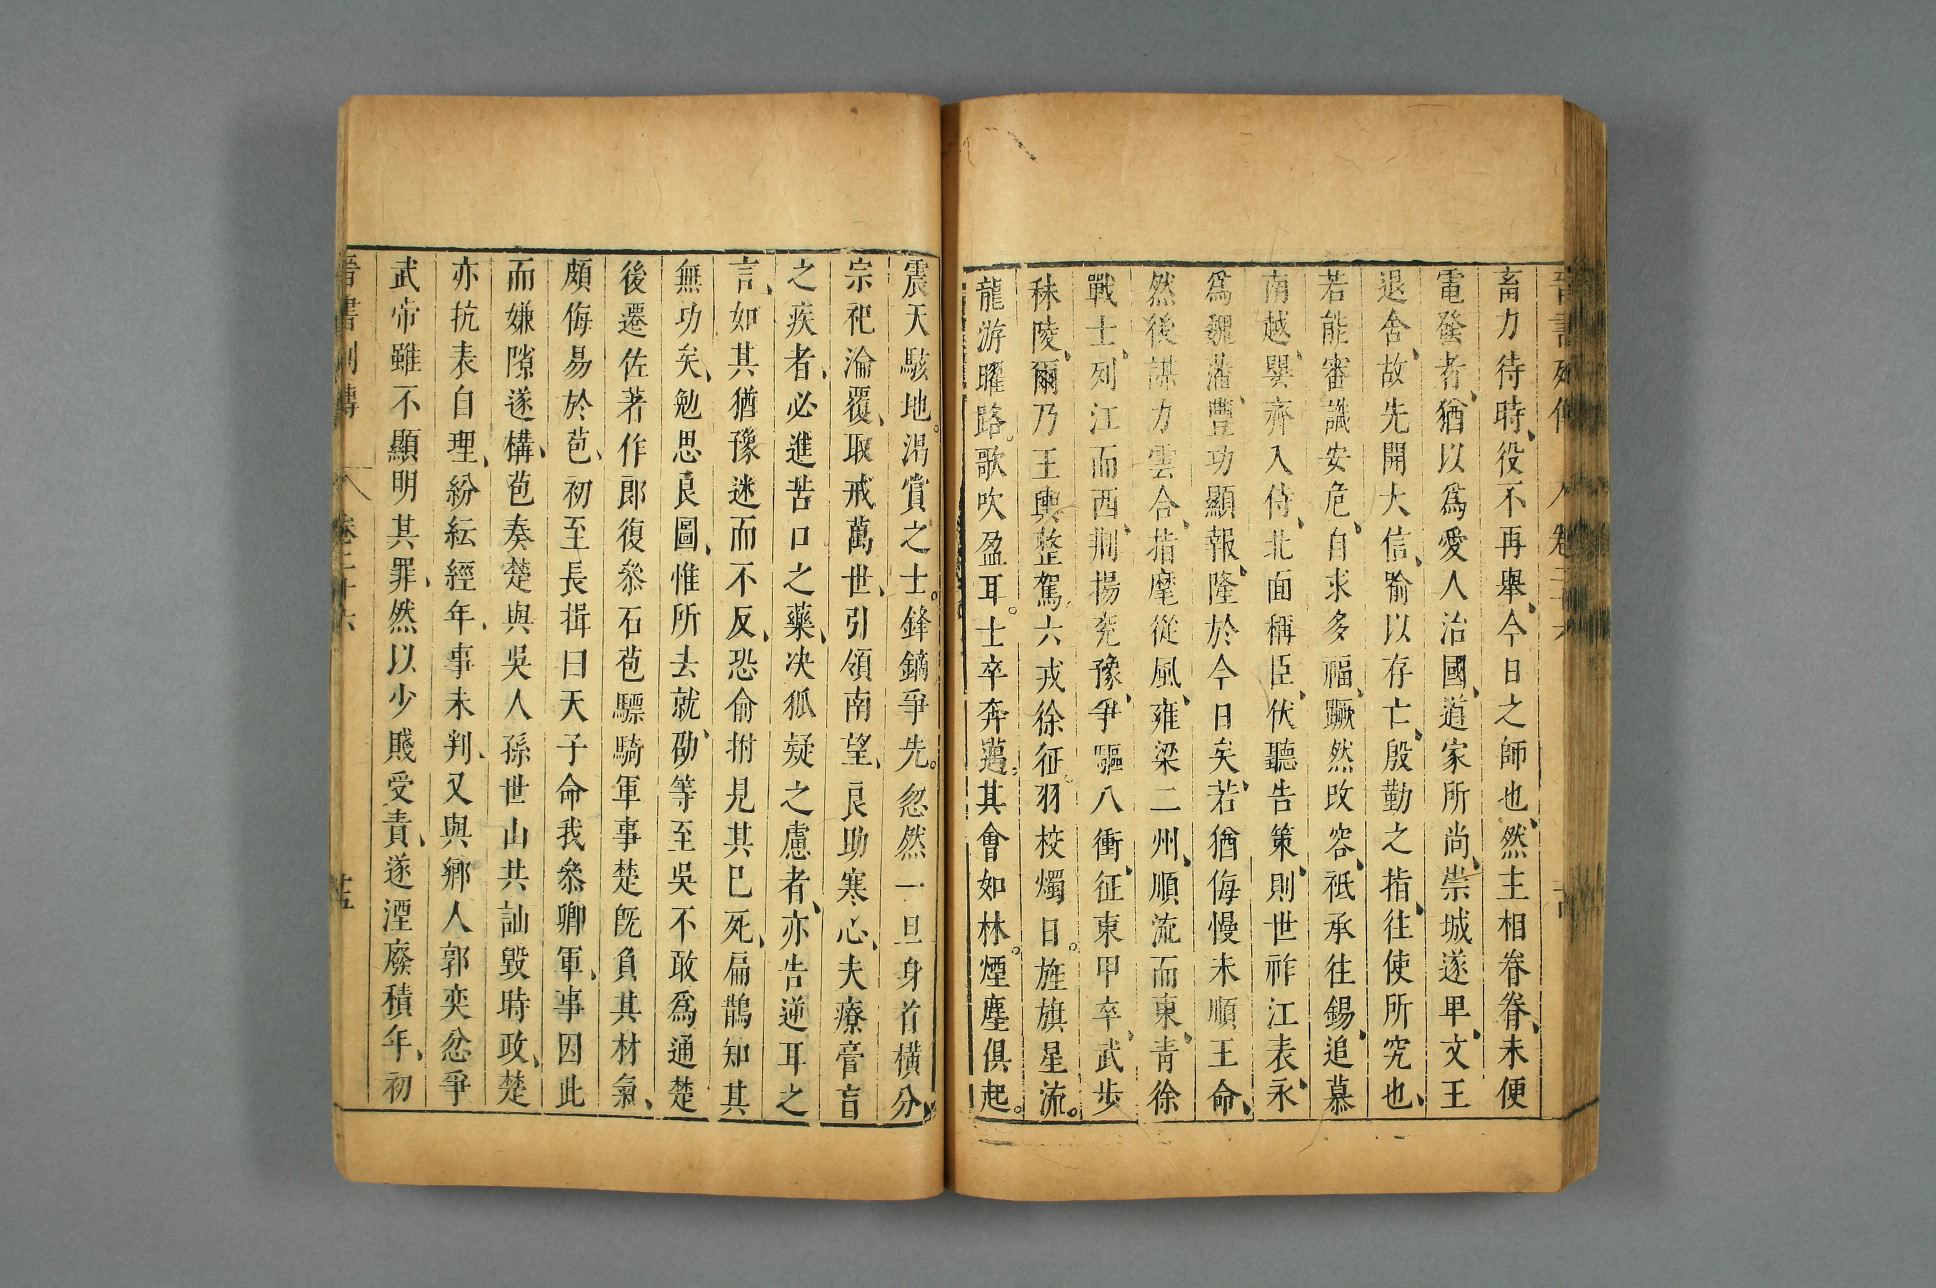 晉書列傳 卷三十六
畜力待時、役不再舉、今日之師也、然主相眷眷、未便
電發者、猶以爲愛人治國、道家所尚、崇城遂卑、文王
退舍、故先開大信、喻以存亡、殷勤之指、往使所究也、
若能審識安危、自求多福、蹶然攺容、祗承往錫、追慕
南越、嬰齊入侍、北面稱臣、伏聽告策、則世祚江表、永
爲魏藩、豐功顯報、隆於今日矣、若猶侮慢、未順王命、
然後謀力雲合、指麾從風、雍梁二州、順流而東、青徐
戰士、列江而西、荆揚兖豫、爭驅八衝、征東甲卒、武步
秣陵、爾乃王輿整駕、六戎徐征。羽校燭日。旌旗星流。
龍游曜路。歌吹盈耳。士卒奔邁。其會如林。煙塵俱起。
震天駭地。渴賞之士。鋒鏑爭先。忽然一旦身首横分、
宗祀淪覆、取戒萬世、引領南望、良助寒心、夫療膏肓
之疾者、必進苦口之藥、决狐疑之慮者、亦告逆耳之
言、如其猶豫迷而不反、恐俞拊見其巳死、扁鵲知其
無功矣、勉思良圖、惟所去就、劭等至吳不敢爲通楚
後遷佐著作郎復叅石苞驃騎軍事楚旣負其材氣、
頗侮易於苞、初至長揖曰天子命我叅卿軍、事因此
而嫌隙遂構、苞奏楚與吳人孫世山共訕毀時政、楚
亦抗表自理、紛紜經年、事未判、又與鄉人郭奕忿爭
武帝雖不顯明其罪、然以少賤受責、遂湮廢積年、初
晉書列傳 卷三十六 十五